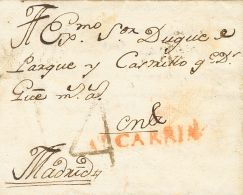 Al Exmo Sor Duque e
Parque y Carrillo q Ds
Gue ms as
en
ALCARRIA
Madrid